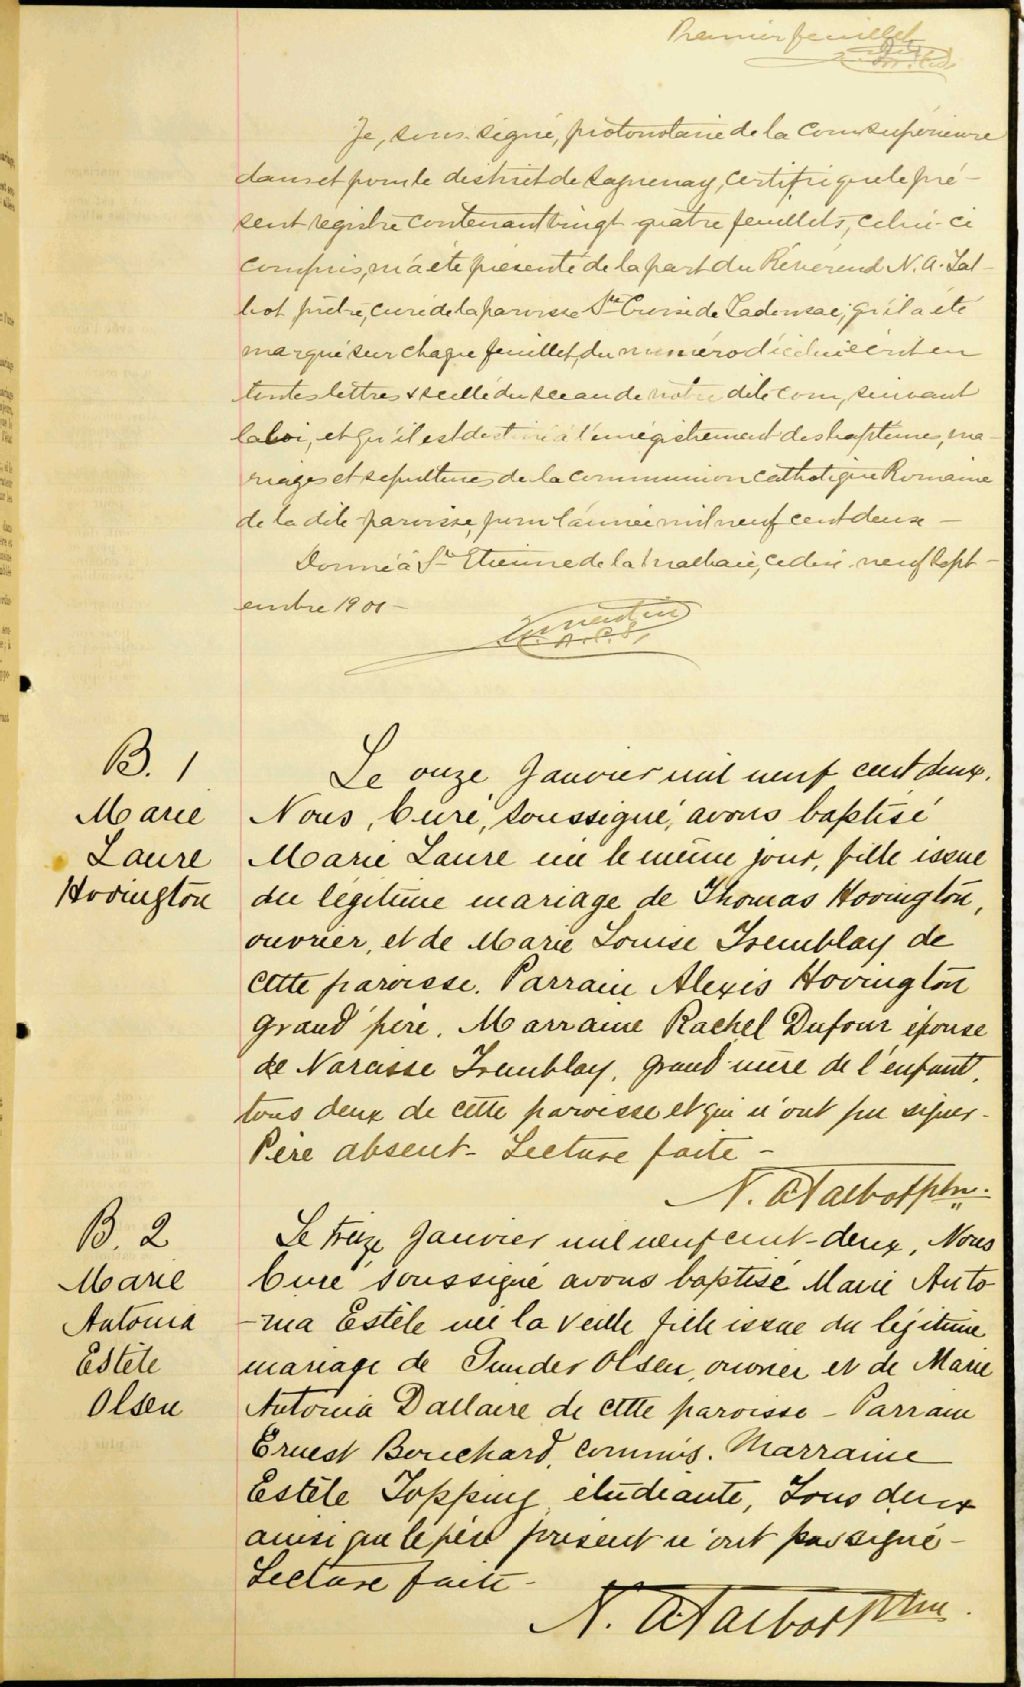 Premier feuillet
Je, sous-signé, protonotaire de la Cour supérieure
dans et pour le district de Saguenay, certifie que le pré-
sent registre contenant vingt-quatre feuillets, celui-ci
compris, m'a été présenté de la part du Révérend N. A. Tal-
bot prêtre, curé de la paroisse Ste Croix de Tadousac; qu'il a été
marqué sur chaque feuillet, du numéro d'icelui écrit en
toutes lettres & scellé du sceau de notre dite cour, suivant
la loi, et qu'il est destiné à l'enrégistrement des baptêmes, ma-
riages et sépultures de la communion catholique Romaine
de la dite paroisse, pour l'année mil neuf cent deux -
Donné à St Etienne de la Malbaie, ce dix-neuf Sept-
embre 1901 -
B. 1
Marie
Laure
Hovington
Le onze Janvier mil neuf cent deux.
Nous, Curé, soussigné, avons baptisé
Marie Laure née le même jour, fille issue
du légitime mariage de Thomas Hovington,
ouvrier, et de Marie Louise Tremblay de
cette paroisse. Parrain Alexis Hovington
grand'père. Marraine Rachel Dufour épouse
de Narcisse Tremblay, grand-mère de l'enfant,
tous deux de cette paroisse et qui n'ont pu signer-
Père absent- Lecture faite -
N. A Talbot ptre.
B. 2
Marie
Antonia
Estèle
Olsen
Le treize Janvier mil neuf cent-deux, Nous
Curé soussigné avons baptisé Marie Anto-
-nia Estèle née la veille fille issue du légitime
mariage de Gunder Olsen, ouvrier et de Marie
Antonia Dallaire de cette paroisse - Parrain
Ernest Bouchard, commis. Marraine
Estèle Topping, étudiante, Tous deux
ainsi que le père présent n'ont pas signé -
Lecture faite -
N. A Talbot Ptre.